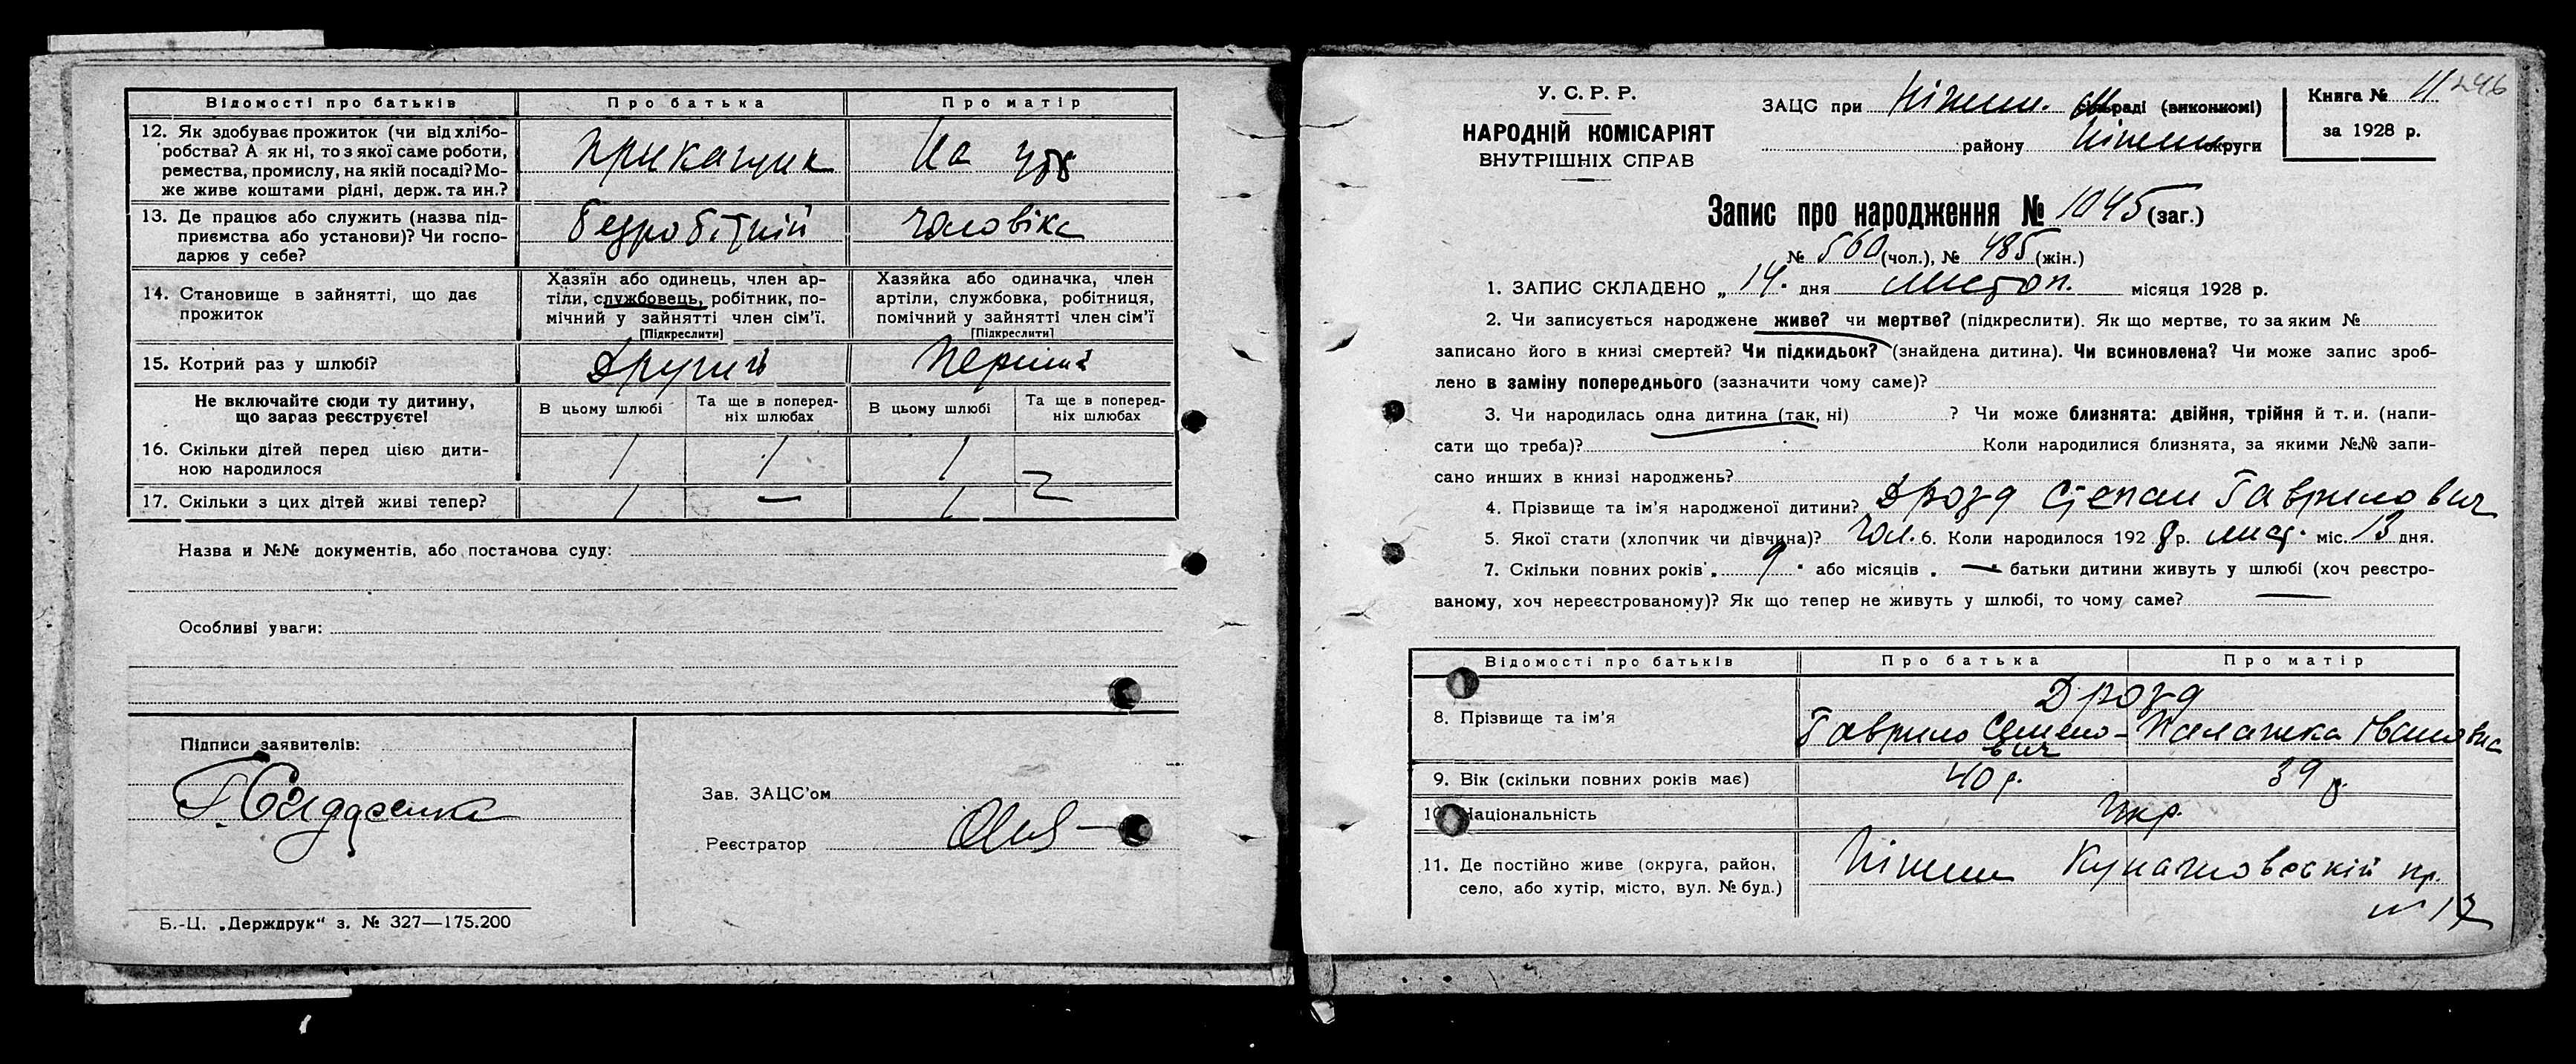 Відомості про батьків Про батька Про матір
12. Як здобуває прожиток (чи від хлібо-
робства? А як ні, то з якої саме роботи,
ремества, промислу, на якій посаді? Мо-
же живе коштами рідні, держ. та ин.?
Прикащик На утр
13. Де працює або служить (назва під-
приємства або установи)? Чи госпо-
дарює у себе?
безробітній чоловіка
14. Становище в зайнятті, що дає
прожиток
Хазяїн або одинець, член ар-
тіли, службовець, робітник, по-
мічний у зайнятті член сім'ї.
[Підкреслити]
Хазяйка або одиначка, член
артіли, службовка, робітниця,
помічний у зайнятті член сім'ї
[Підкреслити]
15. Котрий раз у шлюбі? Другий Перший
Не включайте сюди ту дитину,
що зараз реєструєте!
В цьому шлюбі
Та ще в поперед-
ніх шлюбах
В цьому шлюбі
Та ще в поперед-
ніх шлюбах
16. Скільки дітей перед цією дити-
ною народилося
1 1 1
17. Скільки з цих дітей живі тепер? 1 — 1
Назва и №№ документів, або постанова суду:
Особливі уваги:
Підписи заявителів:
Зав. ЗАЦС'ом
Реєстратор
Б.-Ц. „Держдрук“ з. № 327—175.200
У. С. Р. Р.
НАРОДНІЙ КОМІСАРІЯТ
ВНУТРІШНІХ СПРАВ
ЗАЦС при Ніжин. раді (виконкомі)
району Ніжин округи
Книга № 11 246
за 1928 р.
Запис про народження № 1045 (заг.)
№ 560 (чол.), № 485 (жін.)
1. ЗАПИС СКЛАДЕНО „ 14 · дня листоп. місяця 1928 р.
2. Чи записується народжене живе? чи мертве? (підкреслити). Як що мертве, то за яким №
записано його в книзі смертей? Чи підкидьок? (знайдена дитина). Чи всиновлена? Чи може запис зроб-
лено в заміну попереднього (зазначити чому саме)?
3. Чи народилась одна дитина (так, ні) ? Чи може близнята: двійня, трійня й т. и. (напи-
сати що треба)? Коли народилися близнята, за якими №№ запи-
сано инших в книзі народжень?
4. Прізвище та ім'я народженої дитини? Дрозд Степан Гаврилович
5. Якої стати (хлопчик чи дівчина)? Чол. 6. Коли народилося 1928 р. лист. міс. 13 дня.
7. Скільки повних років „ 9 “ або місяців „ — “ батьки дитини живуть у шлюбі (хоч реєстро-
ваному, хоч нереєстрованому)? Як що тепер не живуть у шлюбі, то чому саме? —
Відомості про батьків Про батька Про матір
Дрозд
8. Прізвище та ім'я Гаврило Семено- Палажка Івановна
вич
9. Вік (скільки повних років має) 40 р. 39 р.
10. Національність Укр.
11. Де постійно живе (округа, район,
село, або хутір, місто, вул. № буд.)
Ніжин Кунашовский пр.
№ 17